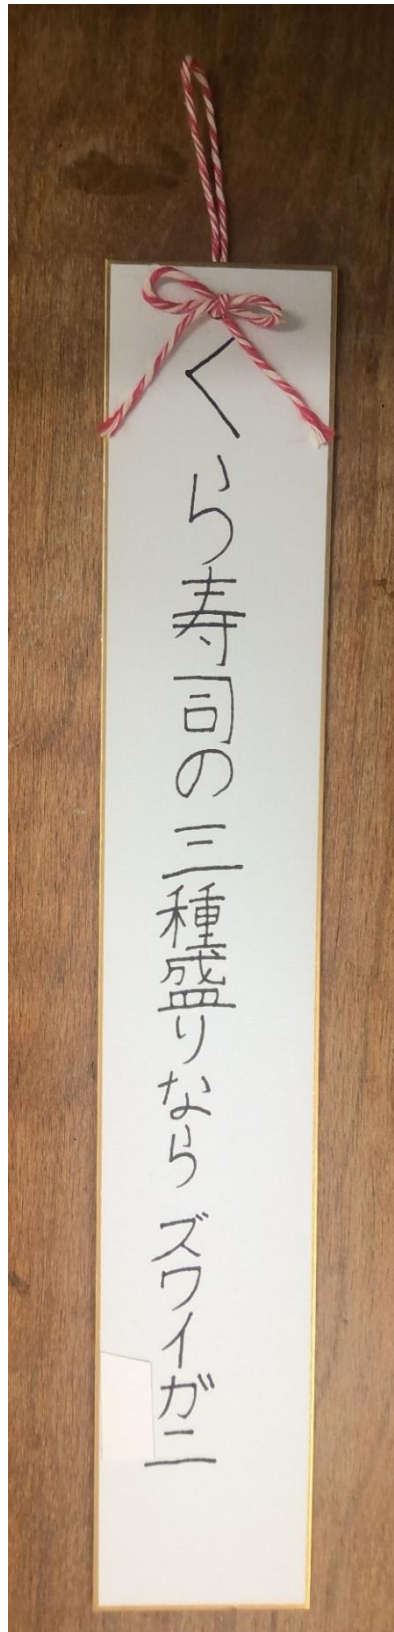 くら寿司の三種盛りならズワイガニ